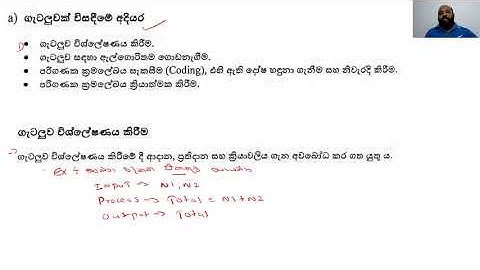 a) ගැටලුවක් විසඳීමේ අදියර
• ගැටලුව විශ්ලේෂණය කිරීම.
• ගැටලුව සඳහා ඇල්ගොරිතම ගොඩනැගීම.
• පරිගණක ක්‍රමලේඛය සැකසීම (Coding), එහි ඇති දෝෂ හඳුනා ගැනීම සහ නිවැරදි කිරීම.
• පරිගණක ක්‍රමලේඛය ක්‍රියාත්මක කිරීම.
ගැටලුව විශ්ලේෂණය කිරීම
ගැටලුව විශ්ලේෂණය කිරීමේ දී ආදාන, ප්‍රතිදාන සහ ක්‍රියාවලිය ගැන අවබෝධ කර ගත යුතු ය.
Ex :
Input → N1, N2
Process → Total = N1+N2
Output → Total